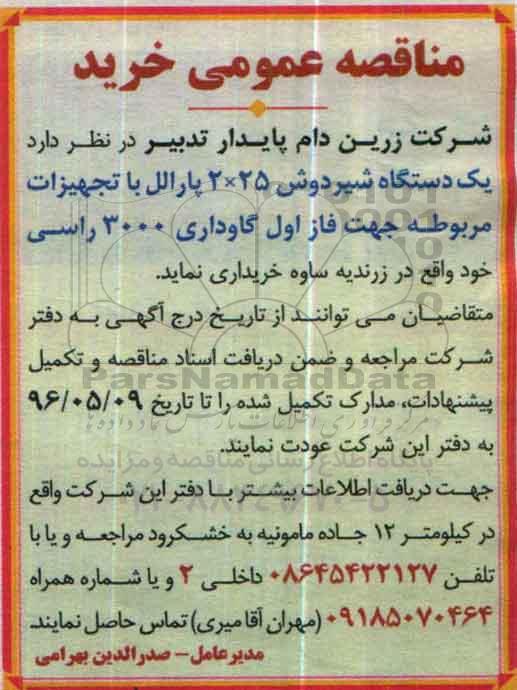 مناقصه عمومی خرید
شرکت زرین دام پایدار تدبیر در نظر دارد
یک دستگاه شیردوش ۲۵×۲ پارالل با تجهیزات
مربوطه جهت فاز اول گاوداری ۳۰۰۰ راسی
خود واقع در زرندیه ساوه خریداری نماید.
متقاضیان می توانند از تاریخ درج آگهی به دفتر
شرکت مراجعه و ضمن دریافت اسناد مناقصه و تکمیل
ParsNamadData
پیشنهادات، مدارک تکمیل شده را تا تاریخ ۹۶/۰۵/۰۹
به دفتر این شرکت عودت نمایند.
پایگاه اطلاع رسانی مناقصه و مزایده
جهت دریافت اطلاعات بیشتر با دفتر این شرکت واقع
در کیلومتر ۱۲ جاده مامونیه به خشکرود مراجعه و یا با
تلفن ۰۸۶۴۵۴۲۲۱۲۷ داخلی ۲ و یا شماره همراه
۰۹۱۸۵۰۷۰۴۶۴ (مهران آقا میری) تماس حاصل نمایند.
مدیرعامل - صدرالدین بهرامی